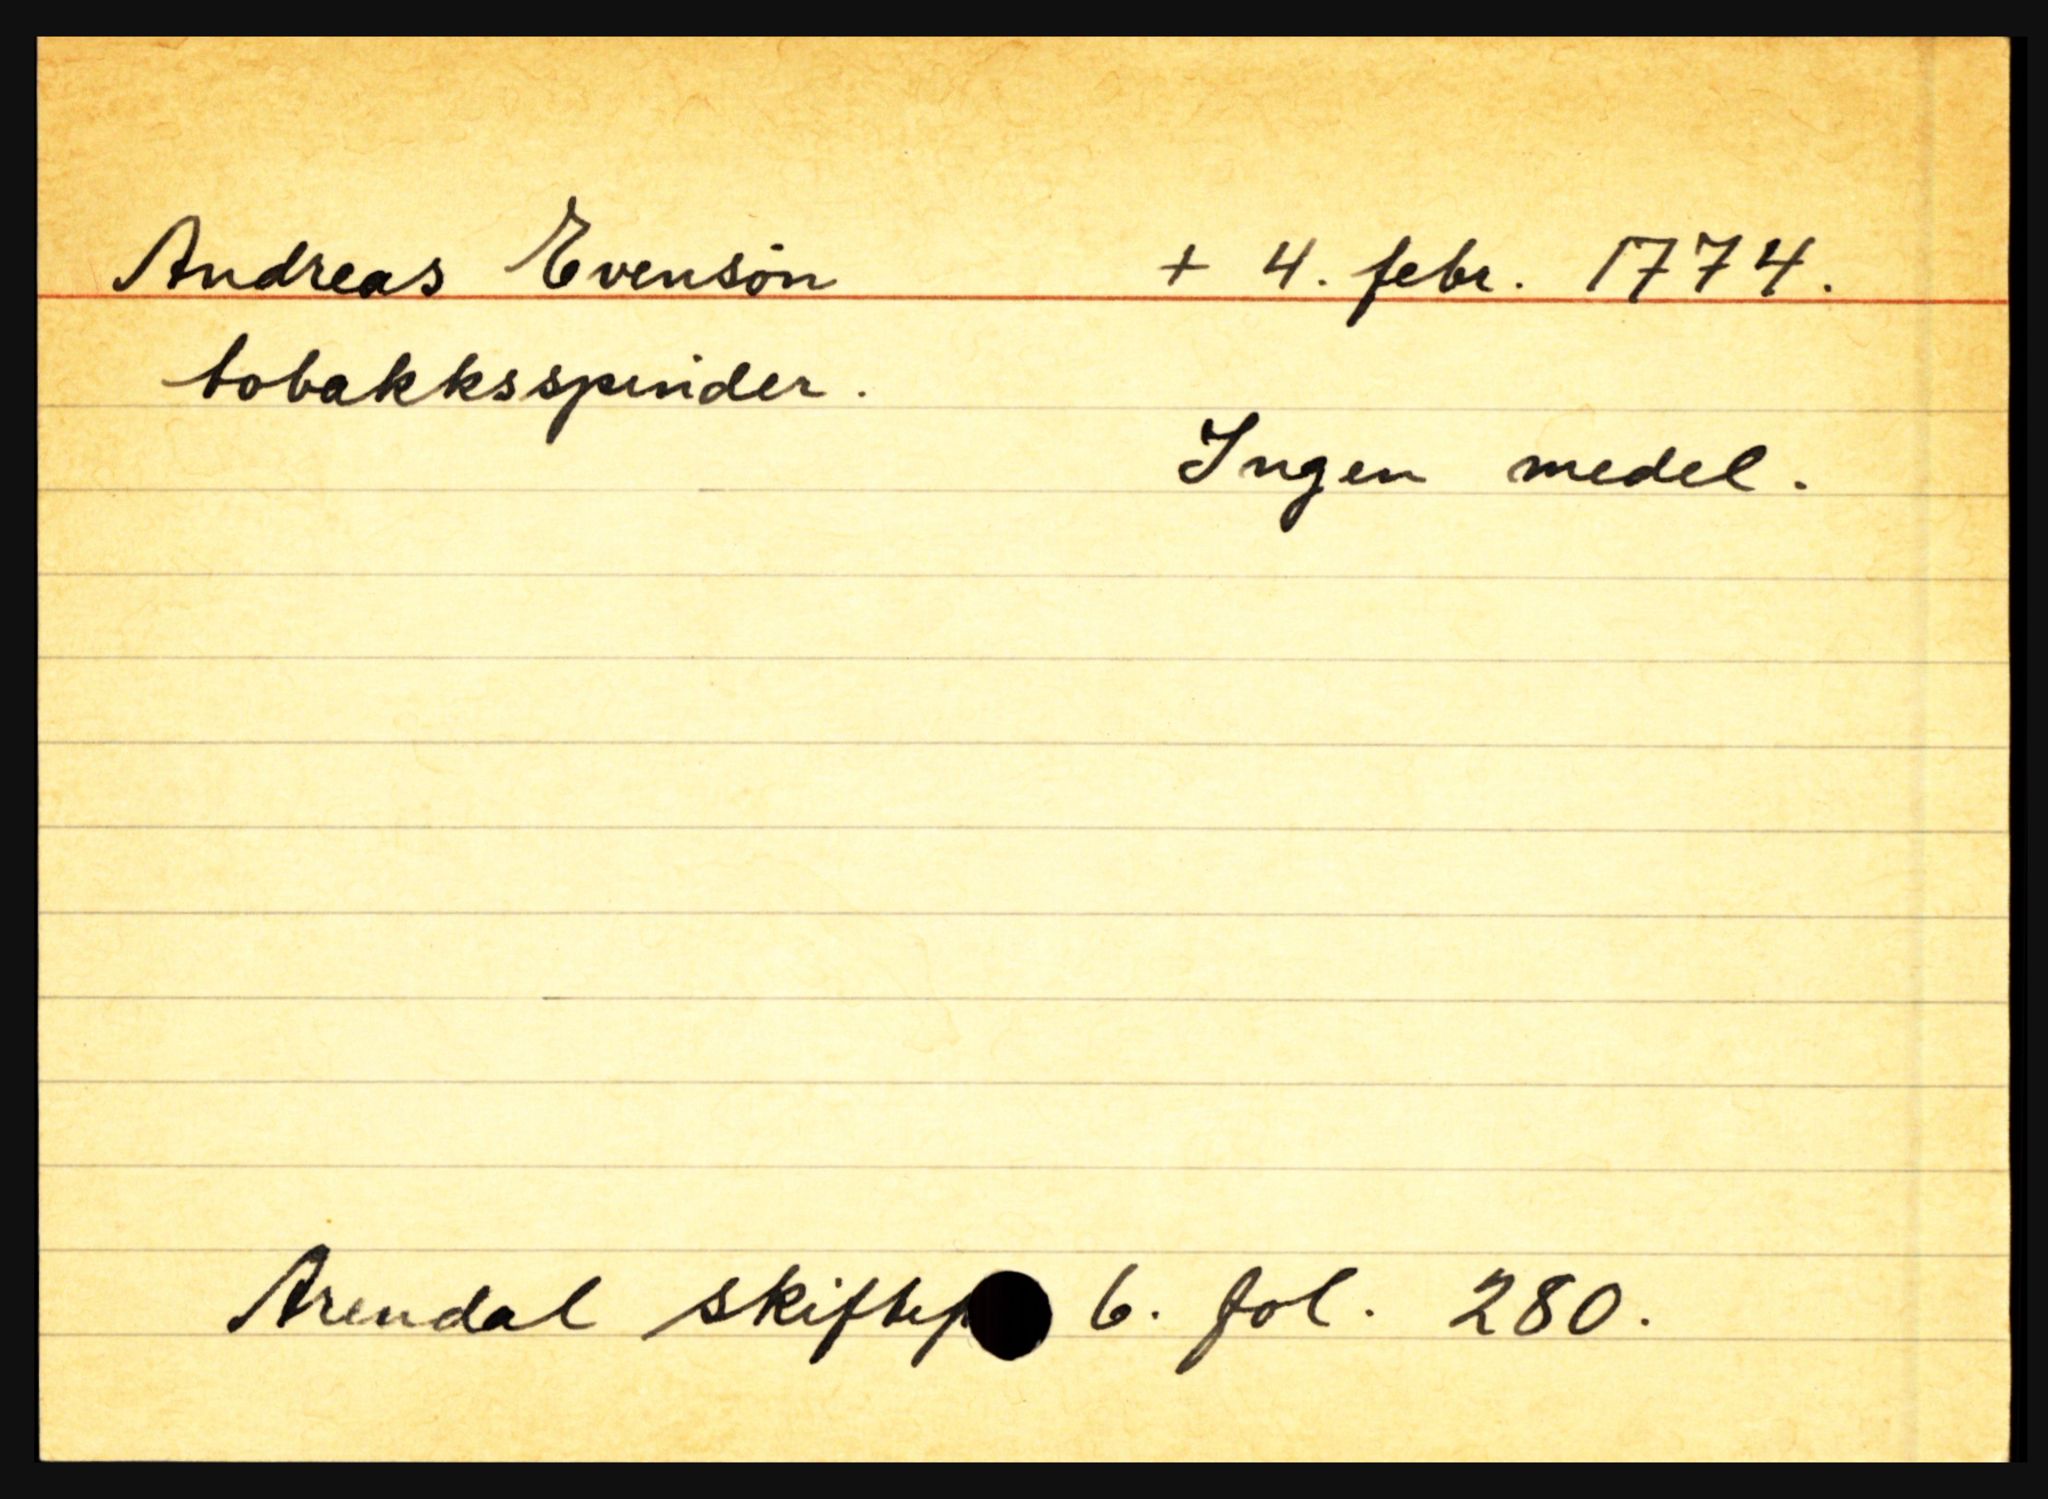 Andreas Evensøn + 4. febr. 1774.
tobakksspinder.
Ingen medel.
Arendal skiftep 6. fol. 280.